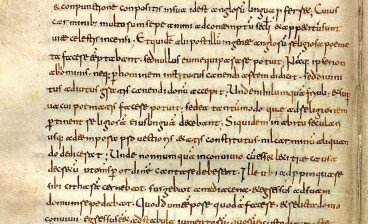 & conpunctione conpositis in sua id est anglorum lingua proferret. Cuius
carminib; multorum saepe animi ad contemptum saeculi & appetitum sunt
uitae caelestis incensi. Et quidem alii post illum in gente anglorum religiosa poemata
facere temtabant. sed nullus eum aequiparare potuit. Namq; ipse non
ab hominib; neq; per hominem institutus canendi artem didicit. sed diuini
tus adiutus gratis canendi donum accepit. Unde nihil umquam friuoli & super
uacui poematis facere potuit. sed ea tantummodo quae ad religionem
pertinent religiosam eius linguam decebant. Siquidem in habitu saeculari
usq; ad tempora prouectioris aetatis constitutus. nil carminum aliquan
do didicerat. Unde nonnumquam in conuiuio cum esset laetitiae causa
decretum ut omnes per ordinem cantare deberent. Ille ubi adpropinquare
sibi citharam cernebat surgebat a media caena & egressus ad suam
domum repedabat. Quod dum tempore quodam faceret & relicta domo
conuiuii egressus esset ad stabula iumentorum quorum